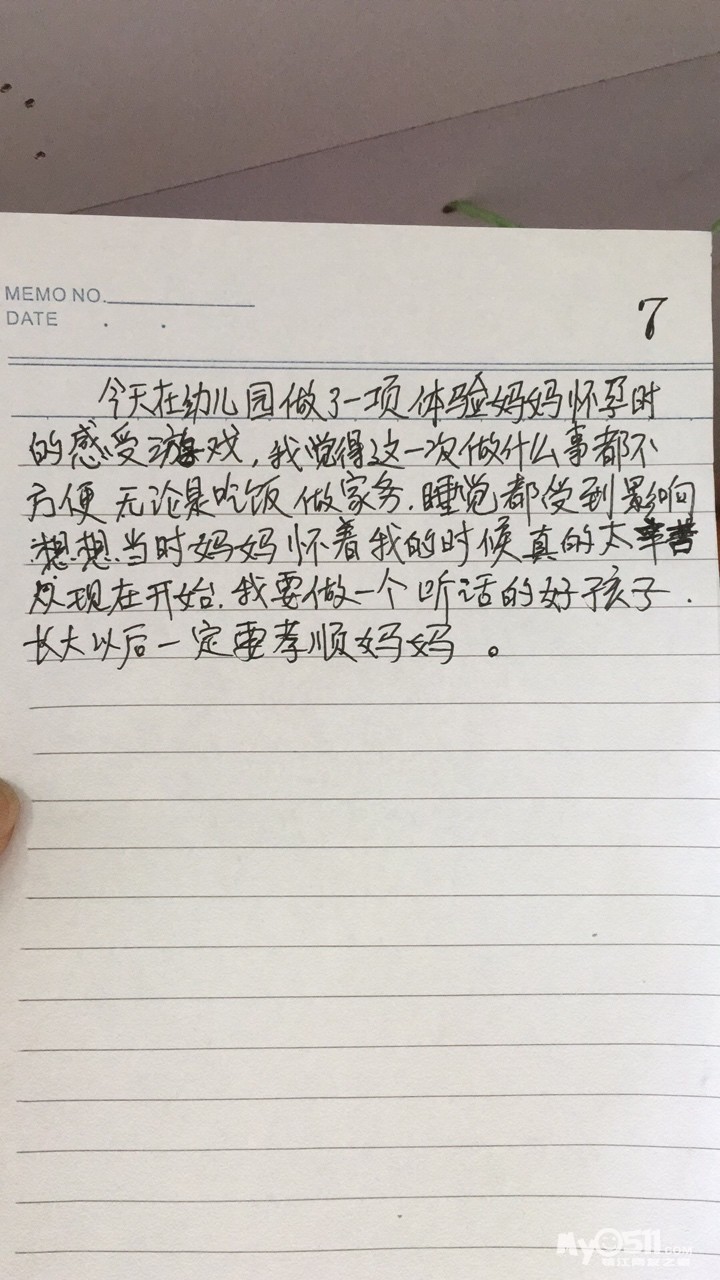 MEMO NO.
DATE . .
7
今天在幼儿园做了一项体验妈妈怀孕时
的感受游戏,我觉得这一次做什么事都不
方便 无论是吃饭 做家务.睡觉都受到影响
想想当时妈妈怀着我的时候真的太辛苦
从现在开始.我要做一个听话的好孩子.
长大以后一定要孝顺妈妈。
My0511.COM